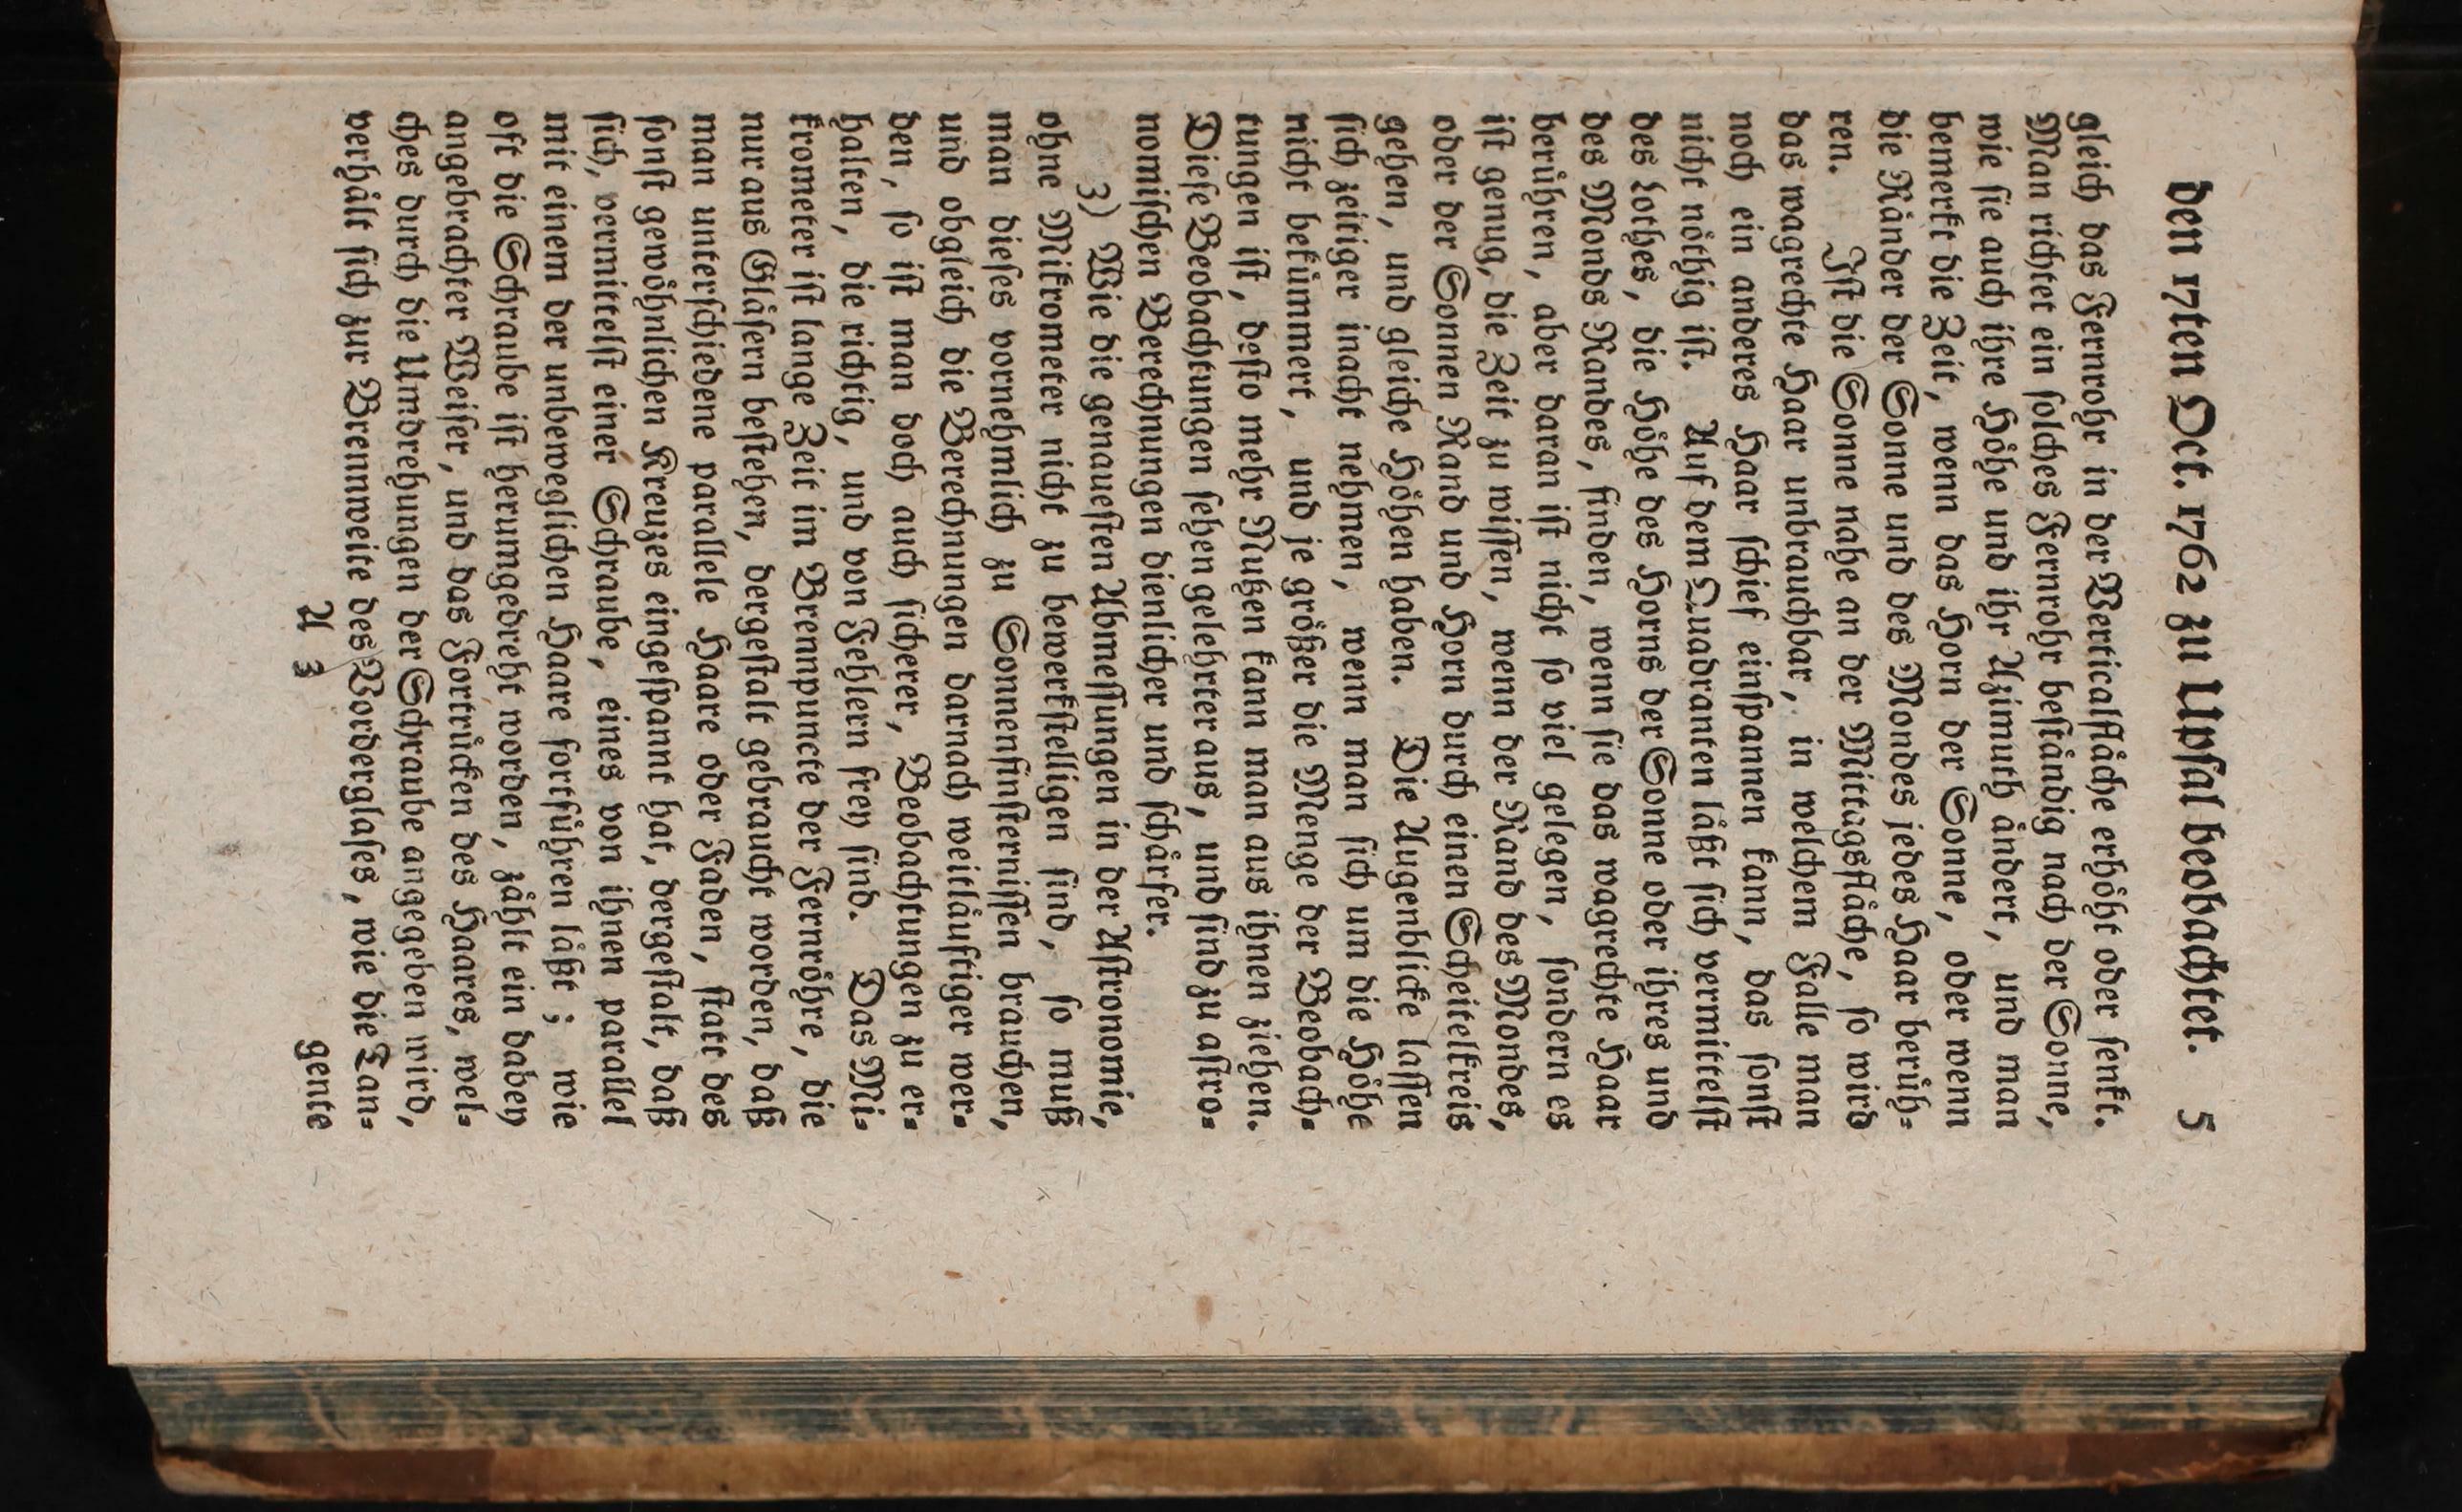 den 17ten Oct. 1762 zu Upſal beobachtet. 5
gleich das Fernrohr in der Verticalfläche erhöht oder ſenkt.
Man richtet ein ſolches Fernrohr beſtändig nach der Sonne,
wie ſie auch ihre Höhe und ihr Azimuth ändert, und man
bemerkt die Zeit, wenn das Horn der Sonne, oder wenn
die Ränder der Sonne und des Mondes jedes Haar berüh-
ren. Iſt die Sonne nahe an der Mittagsfläche, ſo wird
das wagrechte Haar unbrauchbar, in welchem Falle man
noch ein anderes Haar ſchief einſpannen kann, das ſonſt
nicht nöthig iſt. Auf dem Quadranten läßt ſich vermittelſt
des Lothes, die Höhe des Horns der Sonne oder ihres und
des Monds Randes, finden, wenn ſie das wagrechte Haar
berühren, aber daran iſt nicht ſo viel gelegen, ſondern es
iſt genug, die Zeit zu wiſſen, wenn der Rand des Mondes,
oder der Sonnen Rand und Horn durch einen Scheitelkreis
gehen, und gleiche Höhen haben. Die Augenblicke laſſen
ſich zeitiger inacht nehmen, wenn man ſich um die Höhe
nicht bekümmert, und je größer die Menge der Beobach-
tungen iſt, deſto mehr Nutzen kann man aus ihnen ziehen.
Dieſe Beobachtungen ſehen gelehrter aus, und ſind zu aſtro-
nomiſchen Berechnungen dienlicher und ſchärfer.
3) Wie die genaueſten Abmeſſungen in der Aſtronomie,
ohne Mikrometer nicht zu bewerkſtelligen ſind, ſo muß
man dieſes vornehmlich zu Sonnenfinſterniſſen brauchen,
und obgleich die Berechnungen darnach weitläuftiger wer-
den, ſo iſt man doch auch ſicherer, Beobachtungen zu er-
halten, die richtig, und von Fehlern frey ſind. Das Mi-
krometer iſt lange Zeit im Brennpuncte der Fernröhre, die
nur aus Gläſern beſtehen, dergeſtalt gebraucht worden, daß
man unterſchiedene parallele Haare oder Faden, ſtatt des
ſonſt gewöhnlichen Kreuzes eingeſpannt hat, dergeſtalt, daß
ſich, vermittelſt einer Schraube, eines von ihnen parallel
mit einem der unbeweglichen Haare fortführen läßt; wie
oft die Schraube iſt herumgedreht worden, zählt ein dabey
angebrachter Weiſer, und das Fortrücken des Haares, wel-
ches durch die Umdrehungen der Schraube angegeben wird,
verhält ſich zur Brennweite des Vorderglaſes, wie die Tan-
A 3 gente